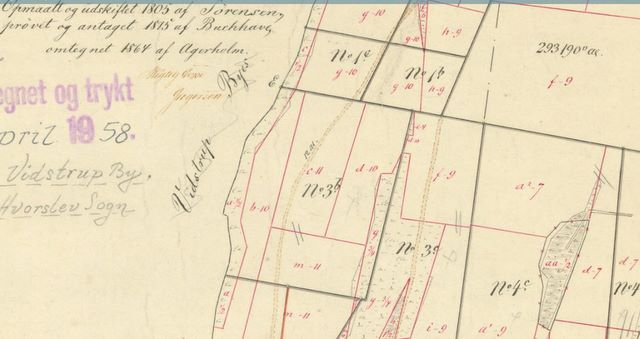 Opmaalt og udskiftet 1805 af Sørensen,
prøvet og antaget 1815 af Buchhave,
omtegnet 1864 af Agerholm.
Rigtig Copi
Jegersen
egnet og trykt
pril 1958.
Vidstrup By,
Hvorslev Sogn
Vidstrup Byes
g-10
g-10
h-9
No 1c
g-10
No 1b
g-10
h-9
293190 □ al.
f-9
c-11
d-10
No 3b
b-10
f-9
a²-7
m-11
No 3a
No 4c
aa-½
d-7
d-7
No 4
m-11
i-9
a¹-9